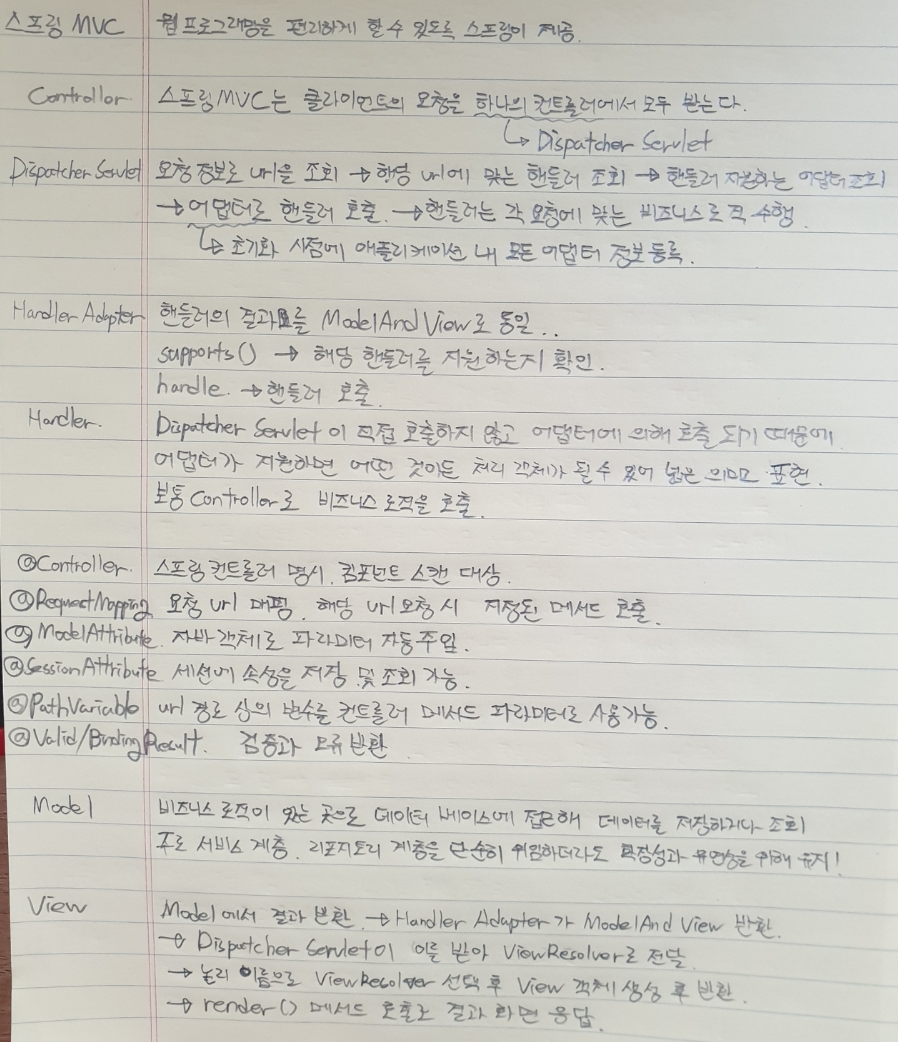 스프링 MVC 웹 프로그래밍은 편리하게 할 수 있도록 스프링이 제공.
Controllor. 스프링 MVC는 클라이언트의 요청을 하나의 컨트롤러에서 모두 받는다.
↳ Dispatcher Servlet
Dispatcher Servlet 요청 정보로 url을 조회 → 해당 url에 맞는 핸들러 조회 → 핸들러 지원하는 어댑터 조회
→ 어댑터로 핸들러 호출. → 핸들러는 각 요청에 맞는 비즈니스 로직 수행.
↳ 초기화 시점에 애플리케이션 내 모든 어댑터 정보 등록.
Handler Adapter 핸들러의 결과를 ModelAndView로 통일..
supports() → 해당 핸들러를 지원하는지 확인.
handle. → 핸들러 호출.
Handler. Dispatcher Servlet이 직접 호출하지 않고 어댑터에 의해 호출 되기 때문에
어댑터가 지원하면 어떤 것이든 처리 객체가 될 수 있어 넓은 의미로 표현.
보통 Controller로 비즈니스 로직을 호출.
@Controller. 스프링 컨트롤러 명시. 컴포넌트 스캔 대상.
@RequestMapping 요청 url 매핑. 해당 url 요청 시 지정된 메서드 호출.
@ModelAttribute. 자바 객체로 파라미터 자동주입.
@SessionAttribute 세션에 속성을 저장 및 조회 가능.
@PathVariable url 경로 상의 변수를 컨트롤러 메서드 파라미터로 사용가능.
@Valid/BindingResult. 검증과 오류 반환
Model 비즈니스 로직이 있는 곳으로 데이터 베이스에 접근해 데이터를 저장하거나 조회
주로 서비스 계층. 리포지토리 계층을 단순히 위임하더라도 확장성과 유연성을 위해 유지!
View Model에서 결과 반환. → Handler Adapter가 ModelAnd View 반환.
→ Dispatcher Servlet이 이를 받아 ViewResolver로 전달
→ 논리 이름으로 ViewResolver 선택 후 View 객체 생성 후 반환.
→ render() 메서드 호출로 결과 화면 응답.